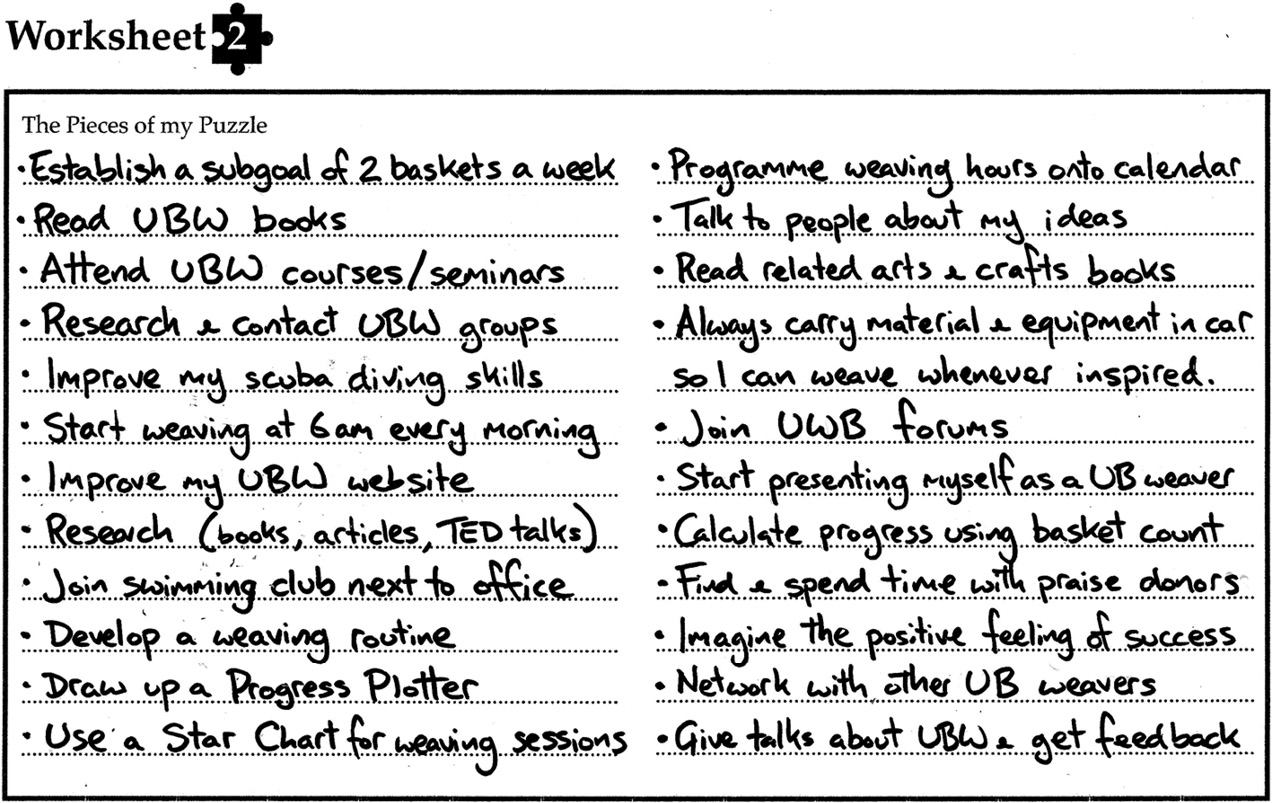 Worksheet 2
The Pieces of my Puzzle
• Establish a subgoal of 2 baskets a week
• Read UBW books
• Attend UBW courses/seminars
• Research & contact UBW groups
• Improve my scuba diving skills
• Start weaving at 6am every morning
• Improve my UBW website
• Research (books, articles, TED talks)
• Join swimming club next to office
• Develop a weaving routine
• Draw up a Progress Plotter
• Use a Star Chart for weaving sessions
• Programme weaving hours onto calendar
• Talk to people about my ideas
• Read related arts & crafts books
• Always carry material & equipment in car
so I can weave whenever inspired.
• Join UWB forums
• Start presenting myself as a UB weaver
• Calculate progress using basket count
• Find & spend time with praise donors
• Imagine the positive feeling of success
• Network with other UB weavers
• Give talks about UBW & get feedback